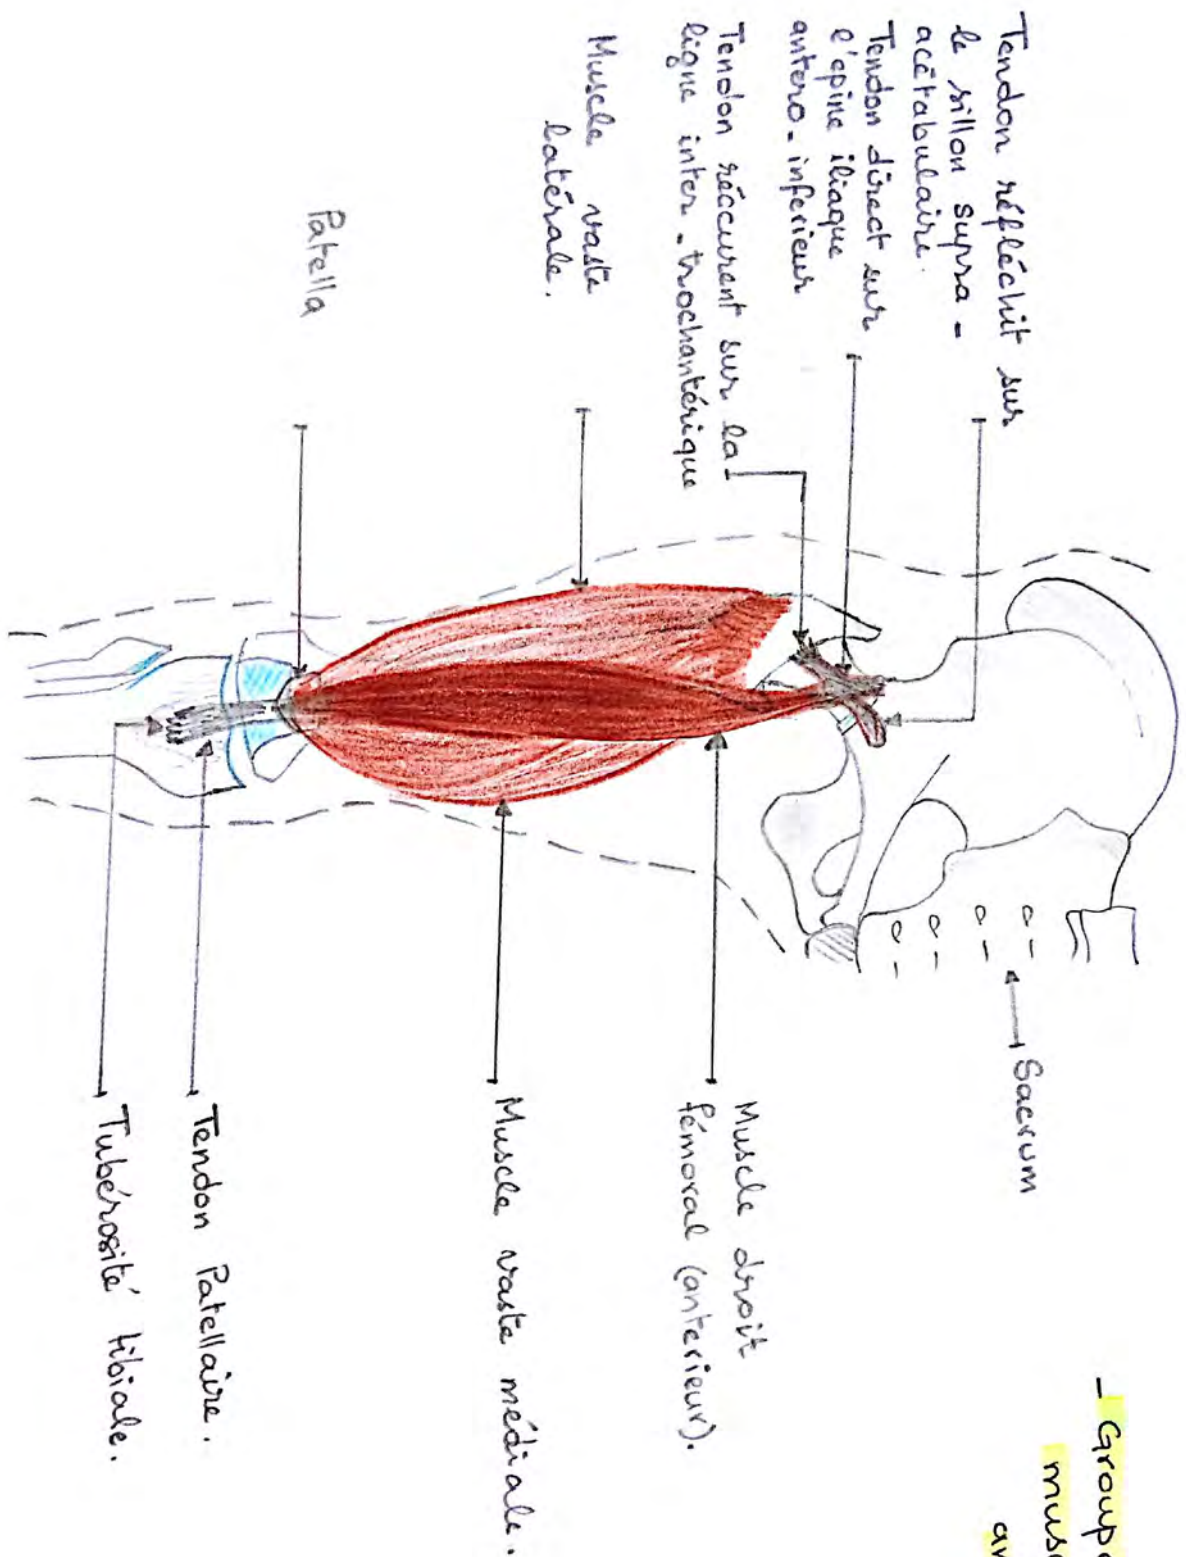 - Groupe
musc
an
Tendon réfléchit sur
le sillon supra -
acétabulaire.
Tendon direct sur
l'épine iliaque
antero-inferieur
Tendon réccurent sur la
ligne inter-trochantérique
Muscle vaste
latérale.
Patella
Sacrum
Muscle droit
fémoral (anterieur).
Muscle vaste médiale.
Tendon Patellaire.
Tubérosité tibiale.